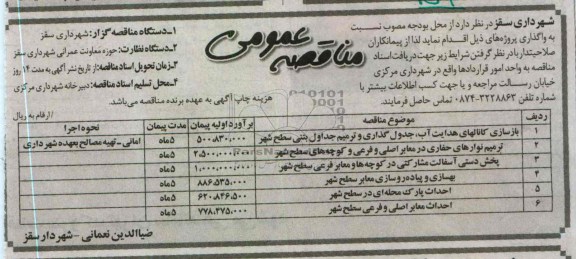 شهرداری سقز در نظر دارد از محل بودجه مصوب نسبت
به واگذاری پروژه‌های ذیل اقدام نماید لذا از پیمانکاران
صلاحیتدار با در نظر گرفتن شرایط زیر جهت دریافت اسناد
مناقصه به واحد امور قراردادها واقع در شهرداری مرکزی
خیابان رسالت مراجعه و یا جهت کسب اطلاعات بیشتر با
شماره تلفن ۳۲۲۸۸۶۳-۰۸۷۴ تماس حاصل فرمایند.
مناقصه عمومی
۱ـ دستگاه مناقصه گزار: شهرداری سقز
۲ـ دستگاه نظارت: حوزه معاونت عمرانی شهرداری سقز
۳ـ زمان تحویل اسناد مناقصه: از تاریخ نشر آگهی به مدت ۱۲ روز
۴ـ محل تسلیم اسناد مناقصه: دبیرخانه شهرداری مرکزی
هزینه چاپ آگهی به عهده برنده مناقصه می‌باشد.
/ارقام به ریال
ردیف موضوع مناقصه برآورد اولیه پیمان مدت پیمان نحوه اجرا
۱ بازسازی کانالهای هدایت آب، جدول گذاری و ترمیم جداول بتنی سطح شهر ۵۰۰،۸۳۰،۰۰۰ ۵ماه امانی-تهیه مصالح بعهده شهرداری
۲ ترمیم نوارهای حفاری در معابر اصلی و فرعی و کوچه‌های سطح شهر ۲،۵۰۰،۰۰۰،۰۰۰ ۵ماه
۳ پخش دستی آسفالت مشارکتی در کوچه‌ها و معابر فرعی سطح شهر ۱،۰۰۰،۰۰۰،۰۰۰ ۵ماه
۴ بهسازی و پیاده‌روسازی معابر سطح شهر ۸۸۶،۵۳۵،۰۰۰ ۵ماه
۵ احداث پارک محله‌ای در سطح شهر ۶۲۰،۸۴۶،۵۰۰ ۵ماه
۶ احداث معابر اصلی و فرعی سطح شهر ۷۷۸،۲۷۵،۰۰۰ ۵ماه
ضیاالدین نعمانی - شهردار سقز